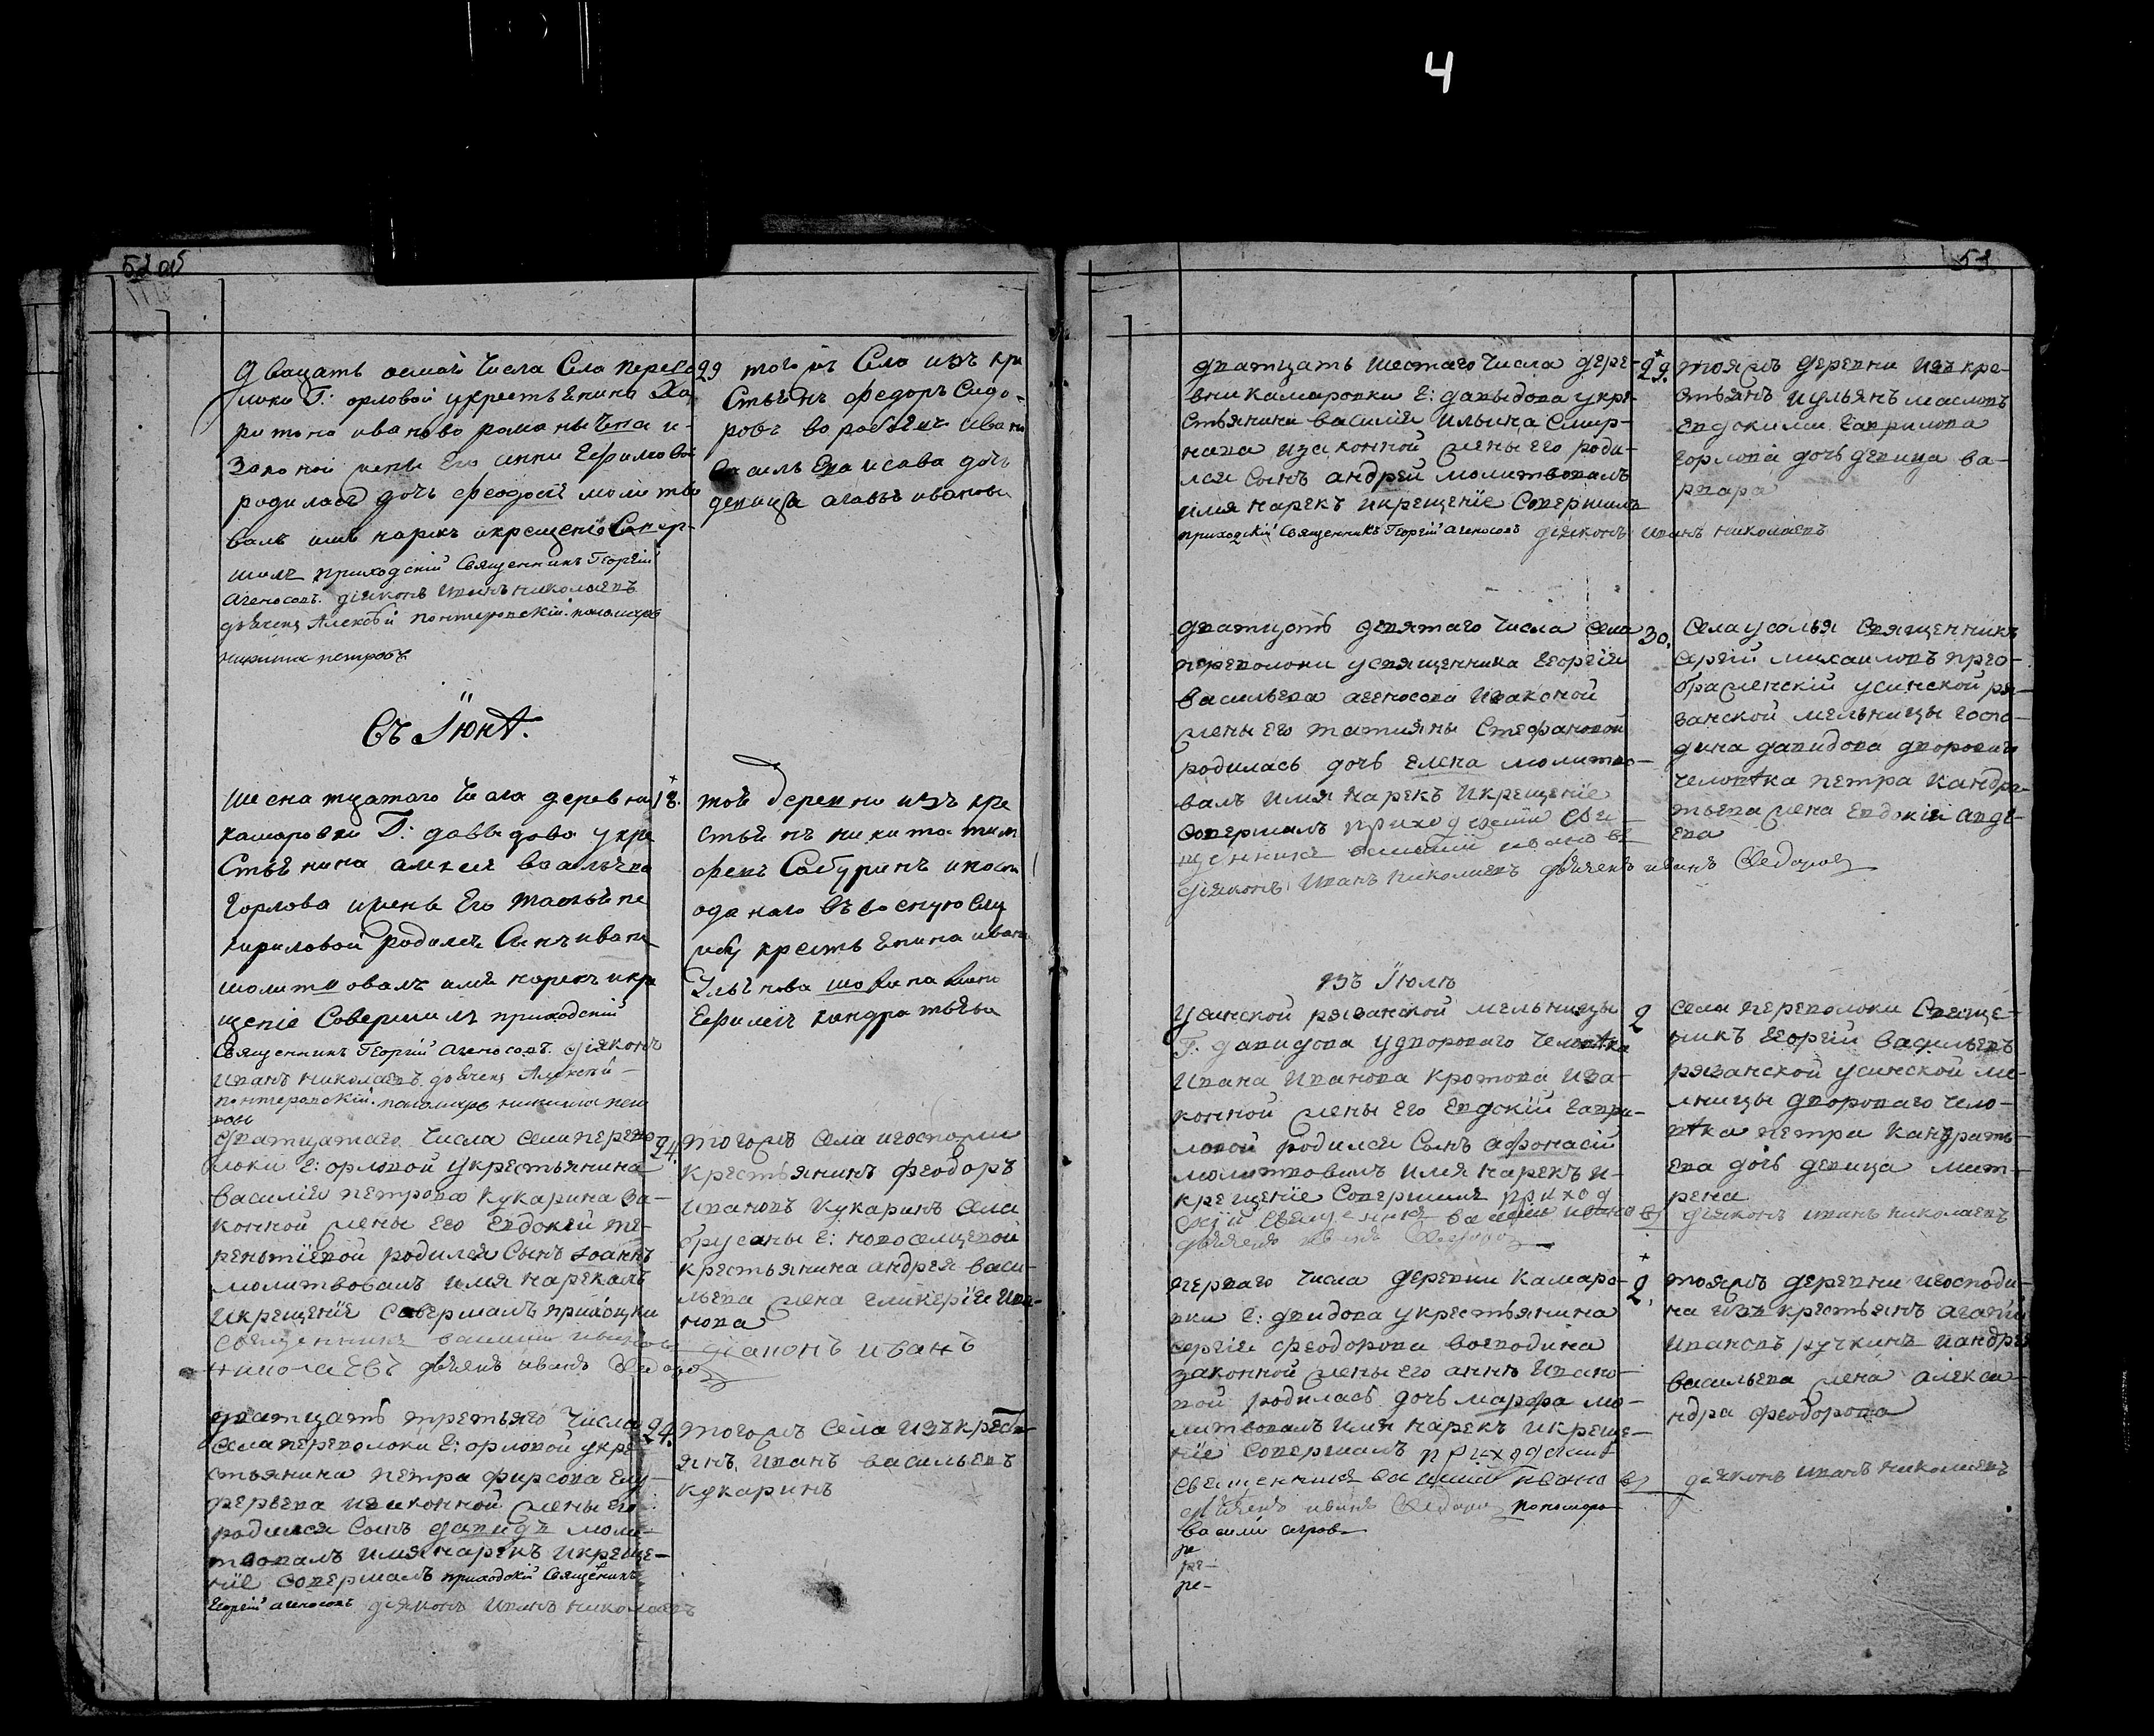 4
52 об
двацать осмаго Числа Села перево
локи Г: орловой укрестьенина Ха
ритона иванова романычева и
Законой жены Его анны Ефимовой
родилась дочь феодосіе молитво
валъ имя нарекъ икрещеніе Совер-
шилъ приходскій Священникъ Георгій
Агеносовъ. діяконъ Иванъ николаевъ
дьячекъ Алексѣй понтеровскій. пономарь
никита петровъ
29
того жъ Села изъ кре
стьянъ федоръ Сидо-
ровъ воробьевъ ивана
дочь
девица агафья иванова
Въ Іюнѣ.
Шеснатцатаго Числа деревни
камаровки Г: давыдова укре
Стьянина алексея васильева
Горлова ижены Его татьяне
кириловой родился Сынъ иванъ
молитвовалъ имя нарекъ икре
щеніе Совершилъ приходскій
Священникъ Георгій Агеносовъ. діяконъ
Иванъ николаевъ дьячекъ Алексѣй
понтеровскій. пономарь никита пет
ровъ
18.
той деревни изъ кре
стьянъ никита тим
офеевъ Сабуринъ
оданаго въ военую Слу
жбу крестьенина ивана
жена
Ефимія кондратьева
дватцатаго Числа села перево
локи Г: орловой укрестьянина
василія петрова кукарина за-
конной жены его Евдокеи те-
рентіевой родился Сынъ іоаннъ
молитвовалъ имя нарекалъ
икрещеніе Совершалъ приходцки
Священникъ василии ивановъ
николаевъ дьячекъ иванъ Федоровъ
24.
тогожъ села игоспожи
крестьянинъ феодоръ
ивановъ кукаринъ села
брусяны Г: новосельцевой
крестьянина андрея васи-
льева жена гликерія ива-
нова
діаконъ иванъ
дватцать третьяго Числа
села переволоки Г: орловой укре
стьянина петра фирсова елу-
ферьева изаконной жены его
родился Сынъ давидъ моли-
твовалъ имя нарекъ икреще-
ніе Совершалъ приходскій Священникъ
Георгій агеносовъ діяконъ Иванъ николаевъ
24.
тогожъ села изъ кресть-
янъ иванъ васильевъ
кукаринъ
53
дватцать шестаго Числа дере-
вни камаровки Г: давыдова укре-
стьянина василия ильина Смир-
нава изаконной жены его роди-
лся сынъ андрей молитвовалъ
имя нарекъ икрещеніе Совершилъ
приходскій Священникъ Георгій агеносовъ діяконъ иванъ николаевъ
29.
тояжъ деревни изъ кре-
стьянъ иульянъ масловъ
Гаврилова
горлова дочь девица ва-
рвара
дватцать девятаго числа села
переволоки усвященника Георгія
васильева агеносова изаконой
жены его татияны Стефановой
родилась дочь елена молитво-
валъ имя нарекъ икрещеніе
совершалъ приходский свя-
щенникъ василий ивановъ
діяконъ Иванъ николаевъ дьячекъ иванъ Федоровъ
30.
Села усолья священникъ
сергій михаиловъ прео-
браженскій усинской ря-
занской мельницы госпо-
дина давидова двороваго
человѣка петра кандра-
тьева жена Евдокія авде-
ева
Въ Іюлѣ
Усинской рязанской мельницы
Г: давидова удвороваго человѣка
ивана иванова кротова иза-
конной жены его Евдокіи гаври-
ловой родился Сынъ афонасій
молитвовалъ имя нарекъ и-
крещеніе Совершилъ приход
ский священникъ василий ивановъ діяконъ иванъ николаевъ
дьячекъ иванъ Федоровъ
2
села переволоки Священ-
никъ Георгій васильевъ
рязанской усинской ме-
льницы двороваго чело-
вѣка петра кандрать-
ева дочь девица мат-
рена
перваго Числа деревни Камаро-
вки Г: двидова укрестьянина
сергія феодорова воеводина
законной жены его анны ивано-
вой родилась дочь марфа мо-
литвовалъ имя нарекъ икреще-
ніе совершалъ приходский
священникъ василий ивановъ діяконъ иванъ николаевъ
дьячекъ иванъ Федоровъ пономарь
Василий
ре
ре-
ре-
2.
тояжъ деревни игосподи-
на изъ крестьянъ агапій
ивановъ ручкинъ иандрея
васильева жена алекса-
ндра феодорова